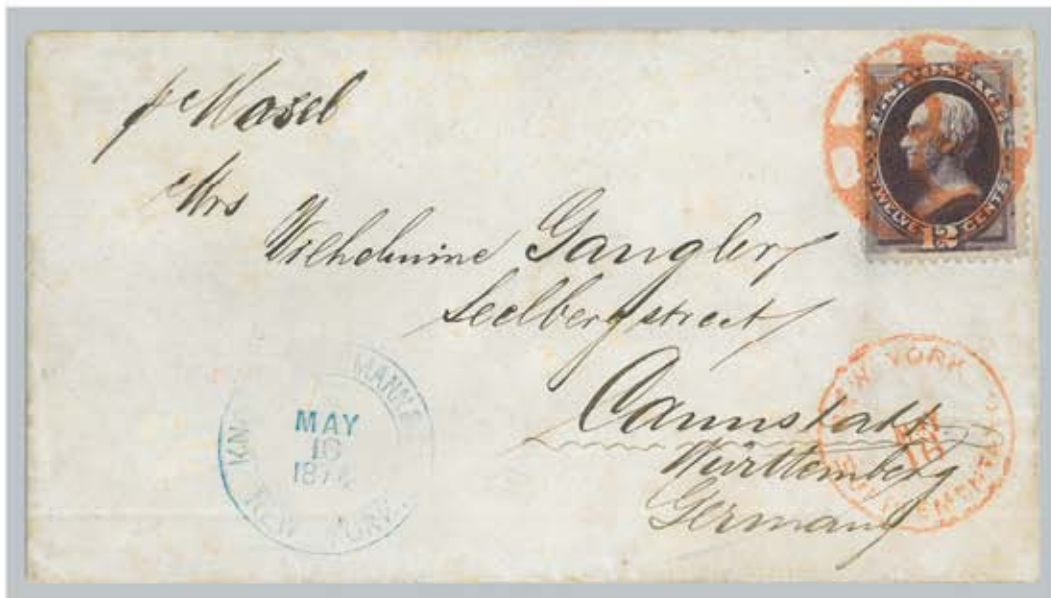 p Mosel
Mrs
Wilhelmine Gangler
Seelberg street
Cannstatt
Württemberg
Germany
U.S. POSTAGE
TWELVE 12 CENTS
NEW YORK
MAY
16
SUPPLEMENTARY
MAY
16
NEW YORK